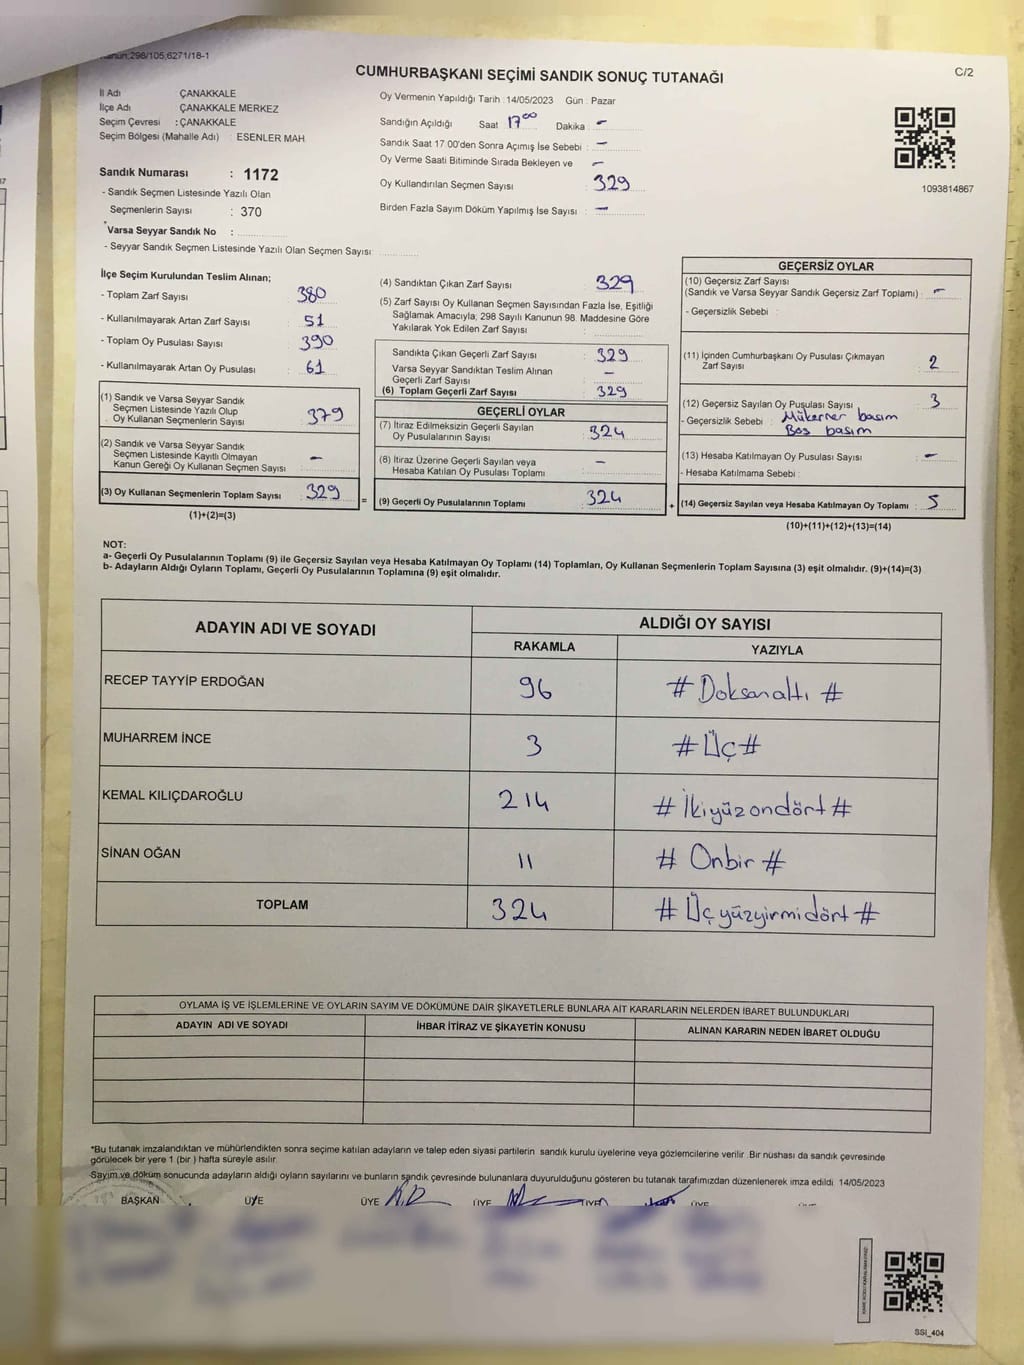 298/105,6271/18-1
CUMHURBAŞKANI SEÇİMİ SANDIK SONUÇ TUTANAĞI
C/2
İl Adı ÇANAKKALE
İlçe Adı ÇANAKKALE MERKEZ
Seçim Çevresi : ÇANAKKALE
Seçim Bölgesi (Mahalle Adı) : ESENLER MAH.
Sandık Numarası : 1172
- Sandık Seçmen Listesinde Yazılı Olan
Seçmenlerin Sayısı : 370
Varsa Seyyar Sandık No :
- Seyyar Sandık Seçmen Listesinde Yazılı Olan Seçmen Sayısı:
Oy Vermenin Yapıldığı Tarih : 14/05/2023 Gün : Pazar
Sandığın Açıldığı Saat 17 00 Dakika : -
Sandık Saat 17 00'den Sonra Açımış İse Sebebi : -
Oy Verme Saati Bitiminde Sırada Bekleyen ve -
Oy Kullandırılan Seçmen Sayısı : 329
Birden Fazla Sayım Döküm Yapılmış İse Sayısı : -
1093814867
İlçe Seçim Kurulundan Teslim Alınan;
- Toplam Zarf Sayısı : 380
- Kullanılmayarak Artan Zarf Sayısı : 51
- Toplam Oy Pusulası Sayısı : 390
- Kullanılmayarak Artan Oy Pusulası : 61
(1) Sandık ve Varsa Seyyar Sandık
Seçmen Listesinde Yazılı Olup
Oy Kullanan Seçmenlerin Sayısı : 379
(2) Sandık ve Varsa Seyyar Sandık
Seçmen Listesinde Kayıtlı Olmayan
Kanun Gereği Oy Kullanan Seçmen Sayısı : -
(3) Oy Kullanan Seçmenlerin Toplam Sayısı : 329 =
(1)+(2)=(3)
(4) Sandıktan Çıkan Zarf Sayısı : 329
(5) Zarf Sayısı Oy Kullanan Seçmen Sayısından Fazla İse, Eşitliği
Sağlamak Amacıyla, 298 Sayılı Kanunun 98. Maddesine Göre
Yakılarak Yok Edilen Zarf Sayısı :
Sandıkta Çıkan Geçerli Zarf Sayısı : 329
Varsa Seyyar Sandıktan Teslim Alınan
Geçerli Zarf Sayısı : -
(6) Toplam Geçerli Zarf Sayısı : 329
GEÇERLİ OYLAR
(7) İtiraz Edilmeksizin Geçerli Sayılan
Oy Pusulalarının Sayısı : 324
(8) İtiraz Üzerine Geçerli Sayılan veya
Hesaba Katılan Oy Pusulası Toplamı : -
(9) Geçerli Oy Pusulalarının Toplamı : 324 +
GEÇERSİZ OYLAR
(10) Geçersiz Zarf Sayısı
(Sandık ve Varsa Seyyar Sandık Geçersiz Zarf Toplamı) : -
- Geçersizlik Sebebi :
(11) İçinden Cumhurbaşkanı Oy Pusulası Çıkmayan
Zarf Sayısı : 2
(12) Geçersiz Sayılan Oy Pusulası Sayısı : 3
- Geçersizlik Sebebi : Mükerrer basım
Boş basım
(13) Hesaba Katılmayan Oy Pusulası Sayısı : -
- Hesaba Katılmama Sebebi :
(14) Geçersiz Sayılan veya Hesaba Katılmayan Oy Toplamı : 5
(10)+(11)+(12)+(13)=(14)
NOT:
a- Geçerli Oy Pusulalarının Toplamı (9) ile Geçersiz Sayılan veya Hesaba Katılmayan Oy Toplamı (14) Toplamları, Oy Kullanan Seçmenlerin Toplam Sayısına (3) eşit olmalıdır. (9)+(14)=(3)
b- Adayların Aldığı Oyların Toplamı, Geçerli Oy Pusulalarının Toplamına (9) eşit olmalıdır.
ADAYIN ADI VE SOYADI
ALDIĞI OY SAYISI
RAKAMLA YAZIYLA
RECEP TAYYİP ERDOĞAN 96 # Doksanaltı #
MUHARREM İNCE 3 # Üç #
KEMAL KILIÇDAROĞLU 214 # İkiyüzondört #
SİNAN OĞAN 11 # Onbir #
TOPLAM 324 # Üçyüzyirmidört #
OYLAMA İŞ VE İŞLEMLERİNE VE OYLARIN SAYIM VE DÖKÜMÜNE DAİR ŞİKAYETLERLE BUNLARA AİT KARARLARIN NELERDEN İBARET BULUNDUKLARI
ADAYIN ADI VE SOYADI İHBAR İTİRAZ VE ŞİKAYETİN KONUSU ALINAN KARARIN NEDEN İBARET OLDUĞU
*Bu tutanak imzalandıktan ve mühürlendikten sonra seçime katılan adayların ve talep eden siyasi partilerin sandık kurulu üyelerine veya gözlemcilerine verilir. Bir nüshası da sandık çevresinde
görülecek bir yere 1 (bir ) hafta süreyle asılır.
Sayım ve döküm sonucunda adayların aldığı oyların sayılarını ve bunların sandık çevresinde bulunanlara duyurulduğunu gösteren bu tutanak tarafımızdan düzenlenerek imza edildi. 14/05/2023
BAŞKAN ÜYE ÜYE ÜYE ÜYE ÜYE
SSİ_404